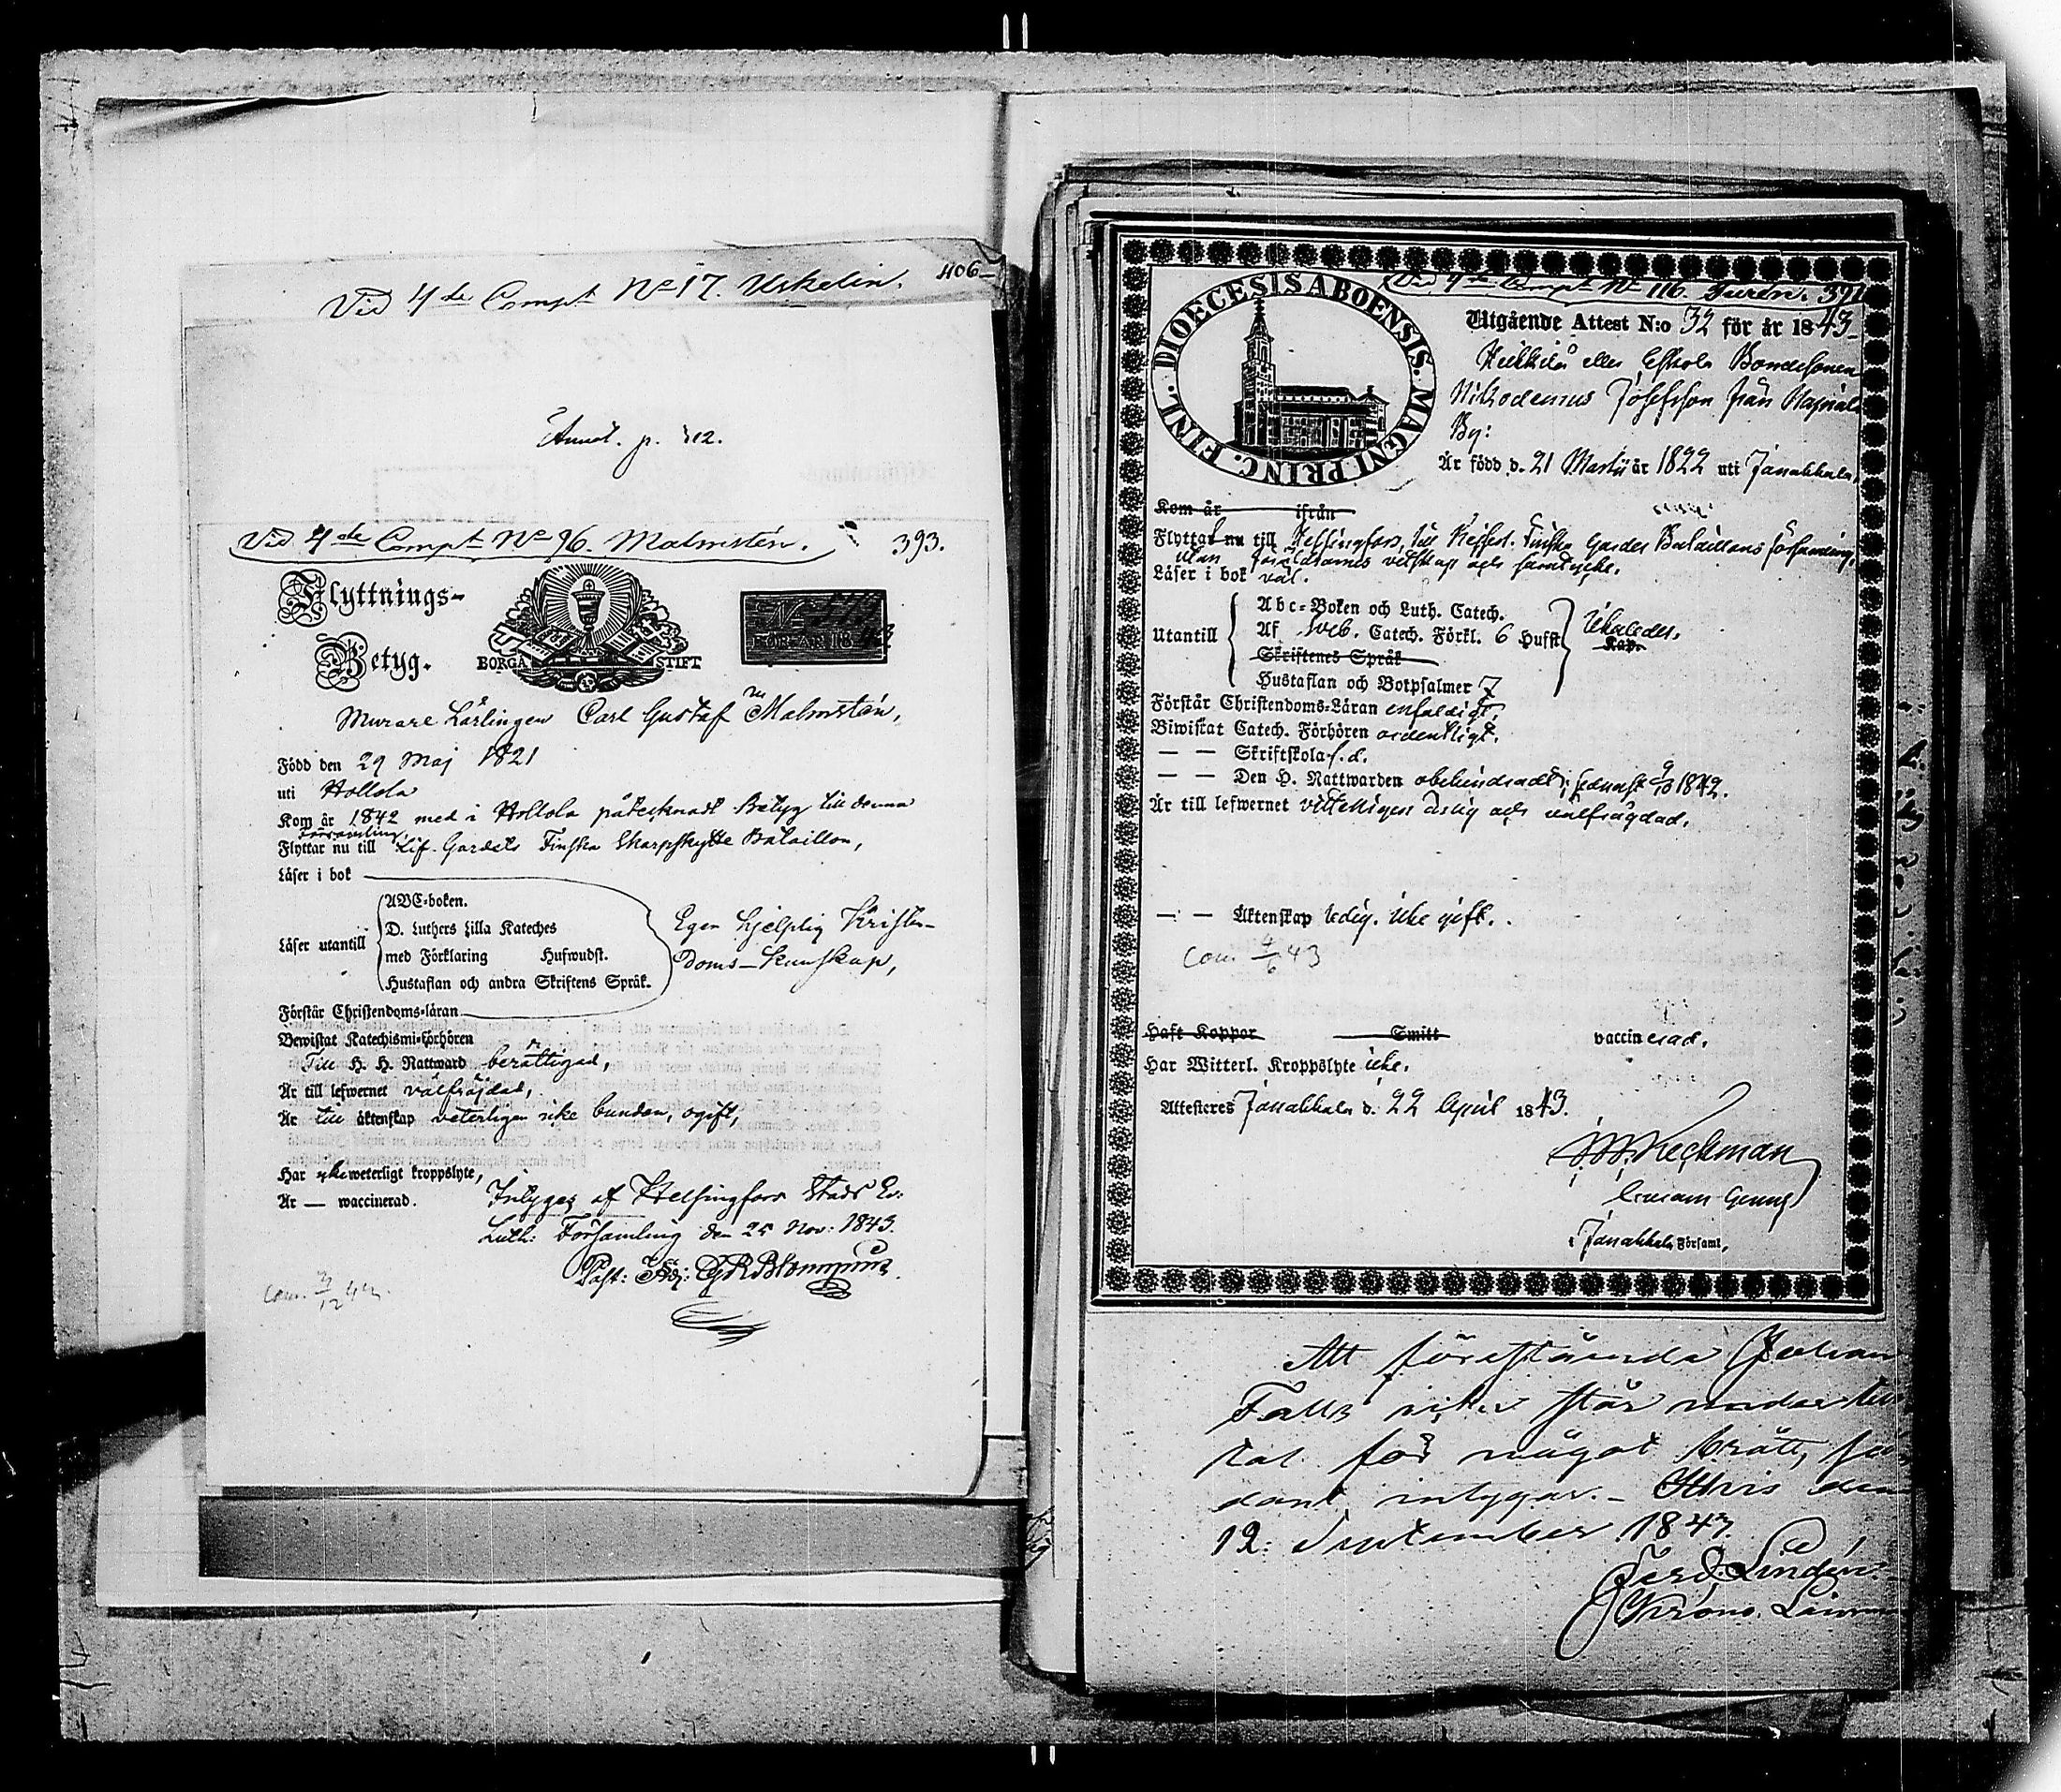 Vid 4de Compt No 17. Uskelin.
406
Annot. p. 312.
Vid 4de Compt No 96. Malmstén.
393.
Flyttnings-
Betyg.
BORGÅ STIFT
No
FÖR ÅR 1843
Murare Lärlingen Carl Gustaf Malmstén,
Född den 29 Maj 1821
uti Hollola
Kom år 1842 med i Hollola påtecknadt Betyg till denna
församling,
Flyttar nu till Lif-Gardets Finska Skarpskytte Bataillon,
Läser i bok
Läser utantill
ABC-boken.
D. Luthers Lilla Kateches
med Förklaring Hufwudst.
Hustaflan och andra Skriftens Språk.
Egen hjelplig Kristen-
doms-kunskap,
Förstår Christendoms-läran
Bewistat Katechismi-förhören
Till H. H. Nattward berättigad,
Är till lefwernet välfräjdad,
Är till äktenskap veterligen icke bunden, ogift,
Har icke weterligt kroppslyte,
Är — waccinerad.
Intygas af Helsingfors Stads Ev:
Luth: Församling den 25 Nov: 1843.
Past: Adj:
Com. 3/12 43.
Vid 4de Compt No 116. Turén. 391
DIOECESIS ABOENSIS. MAGNI PRINC. FINL.
Utgående Attest N:o 32 för år 1843
Heikkilä eller Eskola Bondesonen
Nikodemus Josefsson från
By:
Är född d. 21 Martii år 1822 uti Janakkala,
Kom år ifrån
Flyttat nu till Helsingfors, till Kejserl. Finska Gardes Bataillons församling,
utan föräldrarnes vettskap och samtycke.
Läser i bok väl.
Utantill
Abc-Boken och Luth. Catech.
Af Sveb. Catech. Förkl. 6 Hufst.
Skriftenes Språk
Hustaflan och Botpsalmer 7
Kap.
Förstår Christendoms-Läran enfaldigt,
Biwistat Catech. Förhören ordentligt.
— — Skriftskola s. d.
— — Den H. Nattwarden obehindradt, senast 9/10 1842.
Är till lefwernet vitterligen ärlig och välfrägdad.
— — Äktenskap ledig. icke gift.
Com. 4/6 43
Haft Koppor Smitt vaccinerad.
Har Witterl. Kroppslyte icke.
Attesteras Janakkala d. 22 April 1843.
Heckman
i Janakkala Församl.
Att förestående Johan
Falk icke står under till-
tal för något brått, så-
dant intygar. — Itthis den
12: September 1843.
Ferd. Lindén.
Krono. Länsman